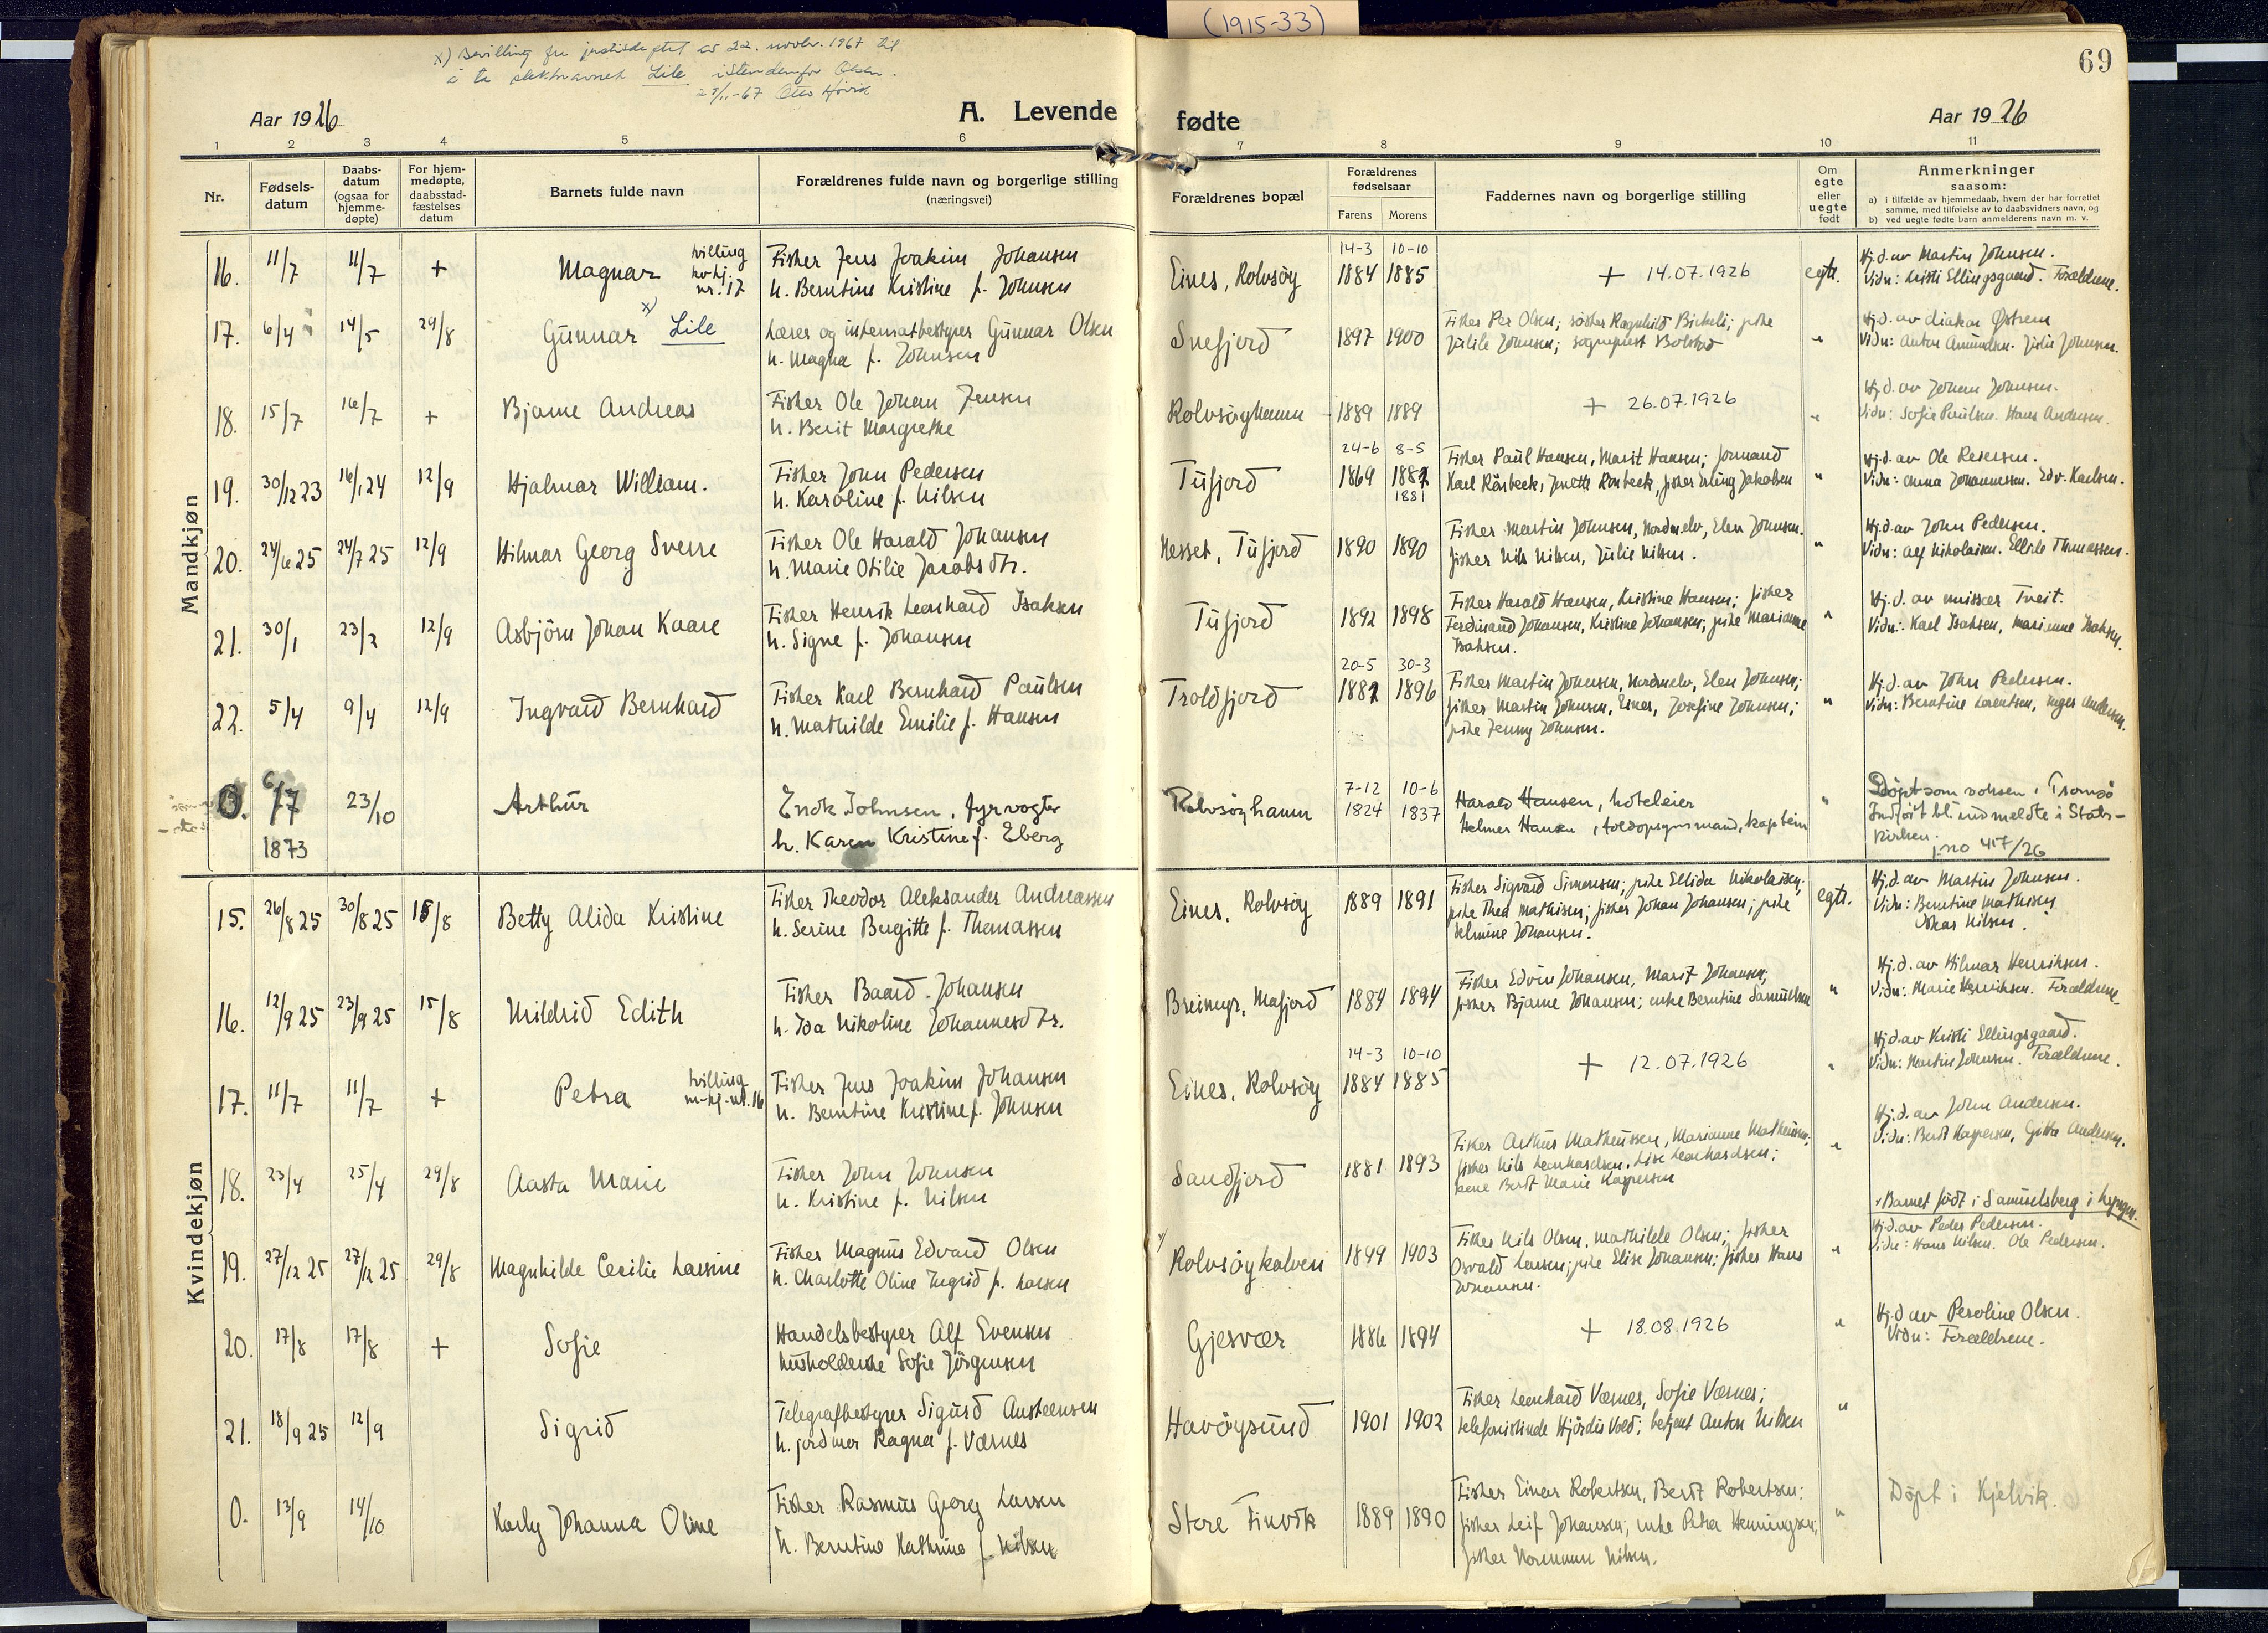 (1915-33)
x) Bevilling fra justisdeptet av 22. novbr. 1967 til
å ta slektsnavnet Lile istendenfor Olsen.
25/11-67 Otto Høvik
69
Aar 1926
A. Levende
fødte
Aar 1926
1 2 3 4 5 6 7 8 9 10 11
Nr.
Fødsels-
datum
Daabs-
datum
(ogsaa for
hjemme-
døpte)
For hjem-
medøpte,
daabsstad-
fæstelses
datum
Barnets fulde navn
Forældrenes fulde navn og borgerlige stilling
(næringsvei)
Forældrenes bopæl
Forældrenes
fødselsaar
Farens Morens
Faddernes navn og borgerlige stilling
Om
egte
eller
uegte
født
Anmerkninger
saasom:
a) i tilfælde av hjemmedaab, hvem der har forrettet
samme, med tilføielse av to daabsvidners navn, og
b) ved uegte fødte barn anmelderens navn m. v.
Mandkjøn
16. 11/7 11/7 + Magnar tvilling kv.kj. nr. 17
Fisker Jens Joakim Johansen
h. Berntine Kristine f. Johnsen
Eines, Rolvsöy 14-3 1884 10-10 1885 + 14.07.1926 egte.
Hj.d. av Martin Johnsen.
Vidn: Kristi Ellingsgaard. Forældrene.
17. 6/4 14/5 29/8 Gunnar x) Lile
Lærer og internatbestyrer Gunnar Olsen
h. Magna f. Johnsen
Snefjord 1897 1900
Fisker Per Olsen; søster Ragnhild Bickeli; pike
Julile Johnsen; sogneprest Bolstad "
Hj.d. av diakon Østrem
Vidn: Anton Amundsen. Julie Johnsen.
18. 15/7 16/7 + Bjarne Andreas
Fisker Ole Johan Jensen
h. Berit Margrethe
Rolvsöyhamn 1889 1889 + 26.07.1926 "
Hj.d. av Johan Johnsen.
Vidn: Sofie Paulsen. Hans Andersen.
19. 30/12 23 16/1 24 12/9 Hjalmar William.
Fisker John Pedersen
h. Karoline f. Nilsen
Tufjord 24-6 1869 8-5 1881
Fisker Paul Hansen, Marit Hansen; formand
Karl Rösbeck, Jenette Rösbeck, fisker Erling Jakobsen "
Hj.d. av Ole Pedersen.
Vidn: Anna Johannessen. Edv. Karlsen.
20. 24/6 25 24/7 25 12/9 Hilmar Georg Sverre
Fisker Ole Harald Johansen
h. Marie Otilie Jacobsdtr.
Nesset, Tufjord 1890 1890
Fisker Martin Johnsen, Nordmelv, Elen Johnsen.
fisker Nils Nilsen, Julie Nilsen. "
Hj.d. av John Pedersen.
Vidn: Alf Nikolaisen. Ellile Thomassen.
21. 30/1 23/2 12/9 Asbjörn Johan Kaare
Fisker Henrik Leonhard Isaksen
h. Signe f. Johansen
Tufjord 1892 1898
Fisker Harald Hansen, Kristine Hansen; fisker
Ferdinand Johansen, Kristine Johansen; pike Marianne
Isaksen. "
Hj.d. av missær Tveit.
Vidn: Karl Isaksen, Marianne Isaksen.
22. 5/4 9/4 12/9 Ingvard Bernhard
Fisker Karl Bernhard Paulsen
h. Mathilde Emilie f. Hansen
Troldfjord 20-5 1881 30-3 1896
Fisker Martin Johnsen, Nordmelv, Elen Johnsen;
fisker Martin Johnsen, Eines, Josefine Johnsen;
pike Jenny Johnsen. "
Hj.d. av John Pedersen.
Vidn: Berntine Lorentsen, Inger Andersen.
0. 6/7 1873 23/10 Arthur
Enok Johnsen, fyrvogter
h. Karen Kristine f. Eberg
Rolvsöyhamn 7-12 1824 10-6 1837
Harald Hansen, hoteleier
Helmer Hansen, toldopsynsmand, kaptein "
Döpt som voksen i Tromsö
Indfört bl. indmeldte i Stats-
kirken.
j.no 417/26
Kvindekjøn
15. 26/8 25 30/8 25 15/8 Betty Alida Kristine
Fisker Theodor Aleksander Andreassen
h. Serine Bergitte f. Thomassen
Eines, Rolvsöy 1889 1891
Fisker Sigvard Simonsen; pike Ellida Nikolaisen;
pike Thea Mathisen; fisker Johan Johansen; pike
Selmine Johansen. egte.
Hj.d. av Martin Johnsen.
Vidn: Berntine Mathisen
Oskar Nilsen.
16. 12/9 25 23/9 25 15/8 Mildrid Edith
Fisker Baard Johansen
h. Ida Nikoline Johannesdtr.
Breimyr, Mafjord 1884 1894
Fisker Edvin Johansen, Marit Johansen;
fisker Bjarne Johansen; enke Berntine Samuelsen "
Hj.d. av Hilmar Henriksen.
Vidn: Marie Henriksen. Forældrene.
17. 11/7 11/7 + Petra tvilling m-kj-nr. 16
Fisker Jens Joakim Johansen
h. Berntine Kristine f. Johnsen
Eines, Rolvsöy 14-3 1884 10-10 1885 + 12.07.1926 "
Hj.d. av Kristi Ellingsgaard.
Vidn: Martin Johnsen. Forældrene.
18. 23/4 25/4 29/8 Aasta Marie
Fisker John Johnsen
h. Kristine f. Nilsen
Sandfjord 1881 1893
Fisker Arthur Matheussen, Marianne Matheussen;
fisker Nils Leonhardsen, Lise Leonhardsen;
kone Berit Marie Kaspersen "
Hj.d. av John Andersen.
Vidn: Berit Kaspersen, Gitta Andersen.
19. 27/12 25 27/12 25 29/8 Magnhilde Cecilie Larsine
Fisker Magnus Edvard Olsen
h. Charlotte Oline Ingrid f. Larsen
x) Rolvsöykalven 1899 1903
Fisker Nils Olsen, Mathilde Olsen; fisker
Osvald Larsen; pike Elise Johansen; fisker Hans
Johansen. "
x Barnet født i Samuelsberg i Lyngen.
Hj.d. av Peder Pedersen.
Vidn: Hans Nilsen. Ole Pedersen.
20. 17/8 17/8 + Sofie
Handelsbestyrer Alf Evensen
husholderske Sofie Jörgensen
Gjesvær 1886 1894 + 18.08.1926 "
Hj.d av Peroline Olsen.
Vidn: Forældrene.
21. 18/9 25 12/9 Sigrid
Telegrafbestyrer Sigurd Austeensen
h. jordmor Ragna f. Værnes
Havöysund 1901 1902
Fisker Leonhard Værnes, Sofie Værnes;
telefonistinde Hjördis Vold; betjent Anton Nilsen "
0. 13/9 14/10 Karly Johanna Oline
Fisker Rasmus Georg Larsen
h. Berntine Kathrine f. Nilsen
Store Finvik 1889 1890
Fisker Einar Robertsen, Berit Robertsen;
fisker Leif Johansen; enke Petra Henningsen;
fisker Normann Nilsen. "
Döpt i Kjelvik.